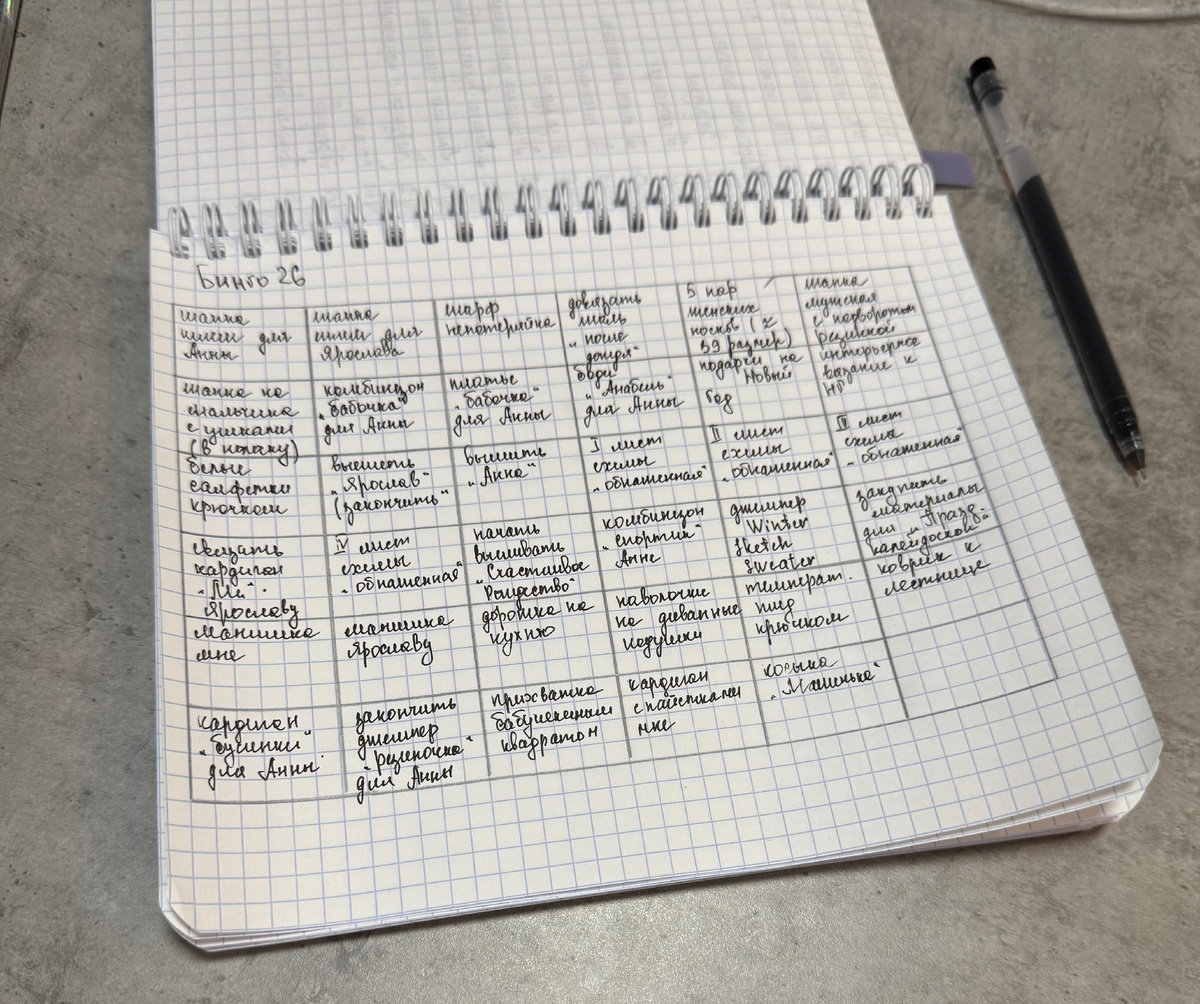 Бинго 26
шапка
шлем для
Анны
шапка
шлем для
Ярослава
шарф
непотеряйка
довязать
шаль
„после
дождя"
5 пар
женских
носков (
39 размер)
подарки на
Новый
Год
шапка
мужская
с подворотом
резинкой
интерьерное
вязание к
НГ
шапка на
мальчика
с ушками
(в полоску)
комбинзон
„бабочка"
для Анны
платье
„бабочка"
для Анны
боди
„Анабель"
для Анны
белые
салфетки
крючком
вышить
„Ярослав"
(закончить"
вышить
„Анна"
I лист
схемы
„обнаженная"
II лист
схемы
„обнаженная"
III лист
схема
„обнаженная"
связать
кардиган
Ярославу
IV лист
схемы
„обнаженная"
начать
вышивать
„Счастливое
Рождество"
комбинзон
„спортик"
Анне
джемпер
Winter
Sketch
Sweater
закупить
материалы
для
калейдоскоп
коврик к
лестнице
манишка
мне
манишка
Ярославу
дорожка на
кухню
наволочки
на диванные
подушки
температ.
плед
крючком
кардиган
„бусинки"
для Анны
закончить
джемпер
"резиночка"
для Анны
прихватка
бабушкиным
квадратом
кардиган
с пайетками
мне
косынка
„Машенька"